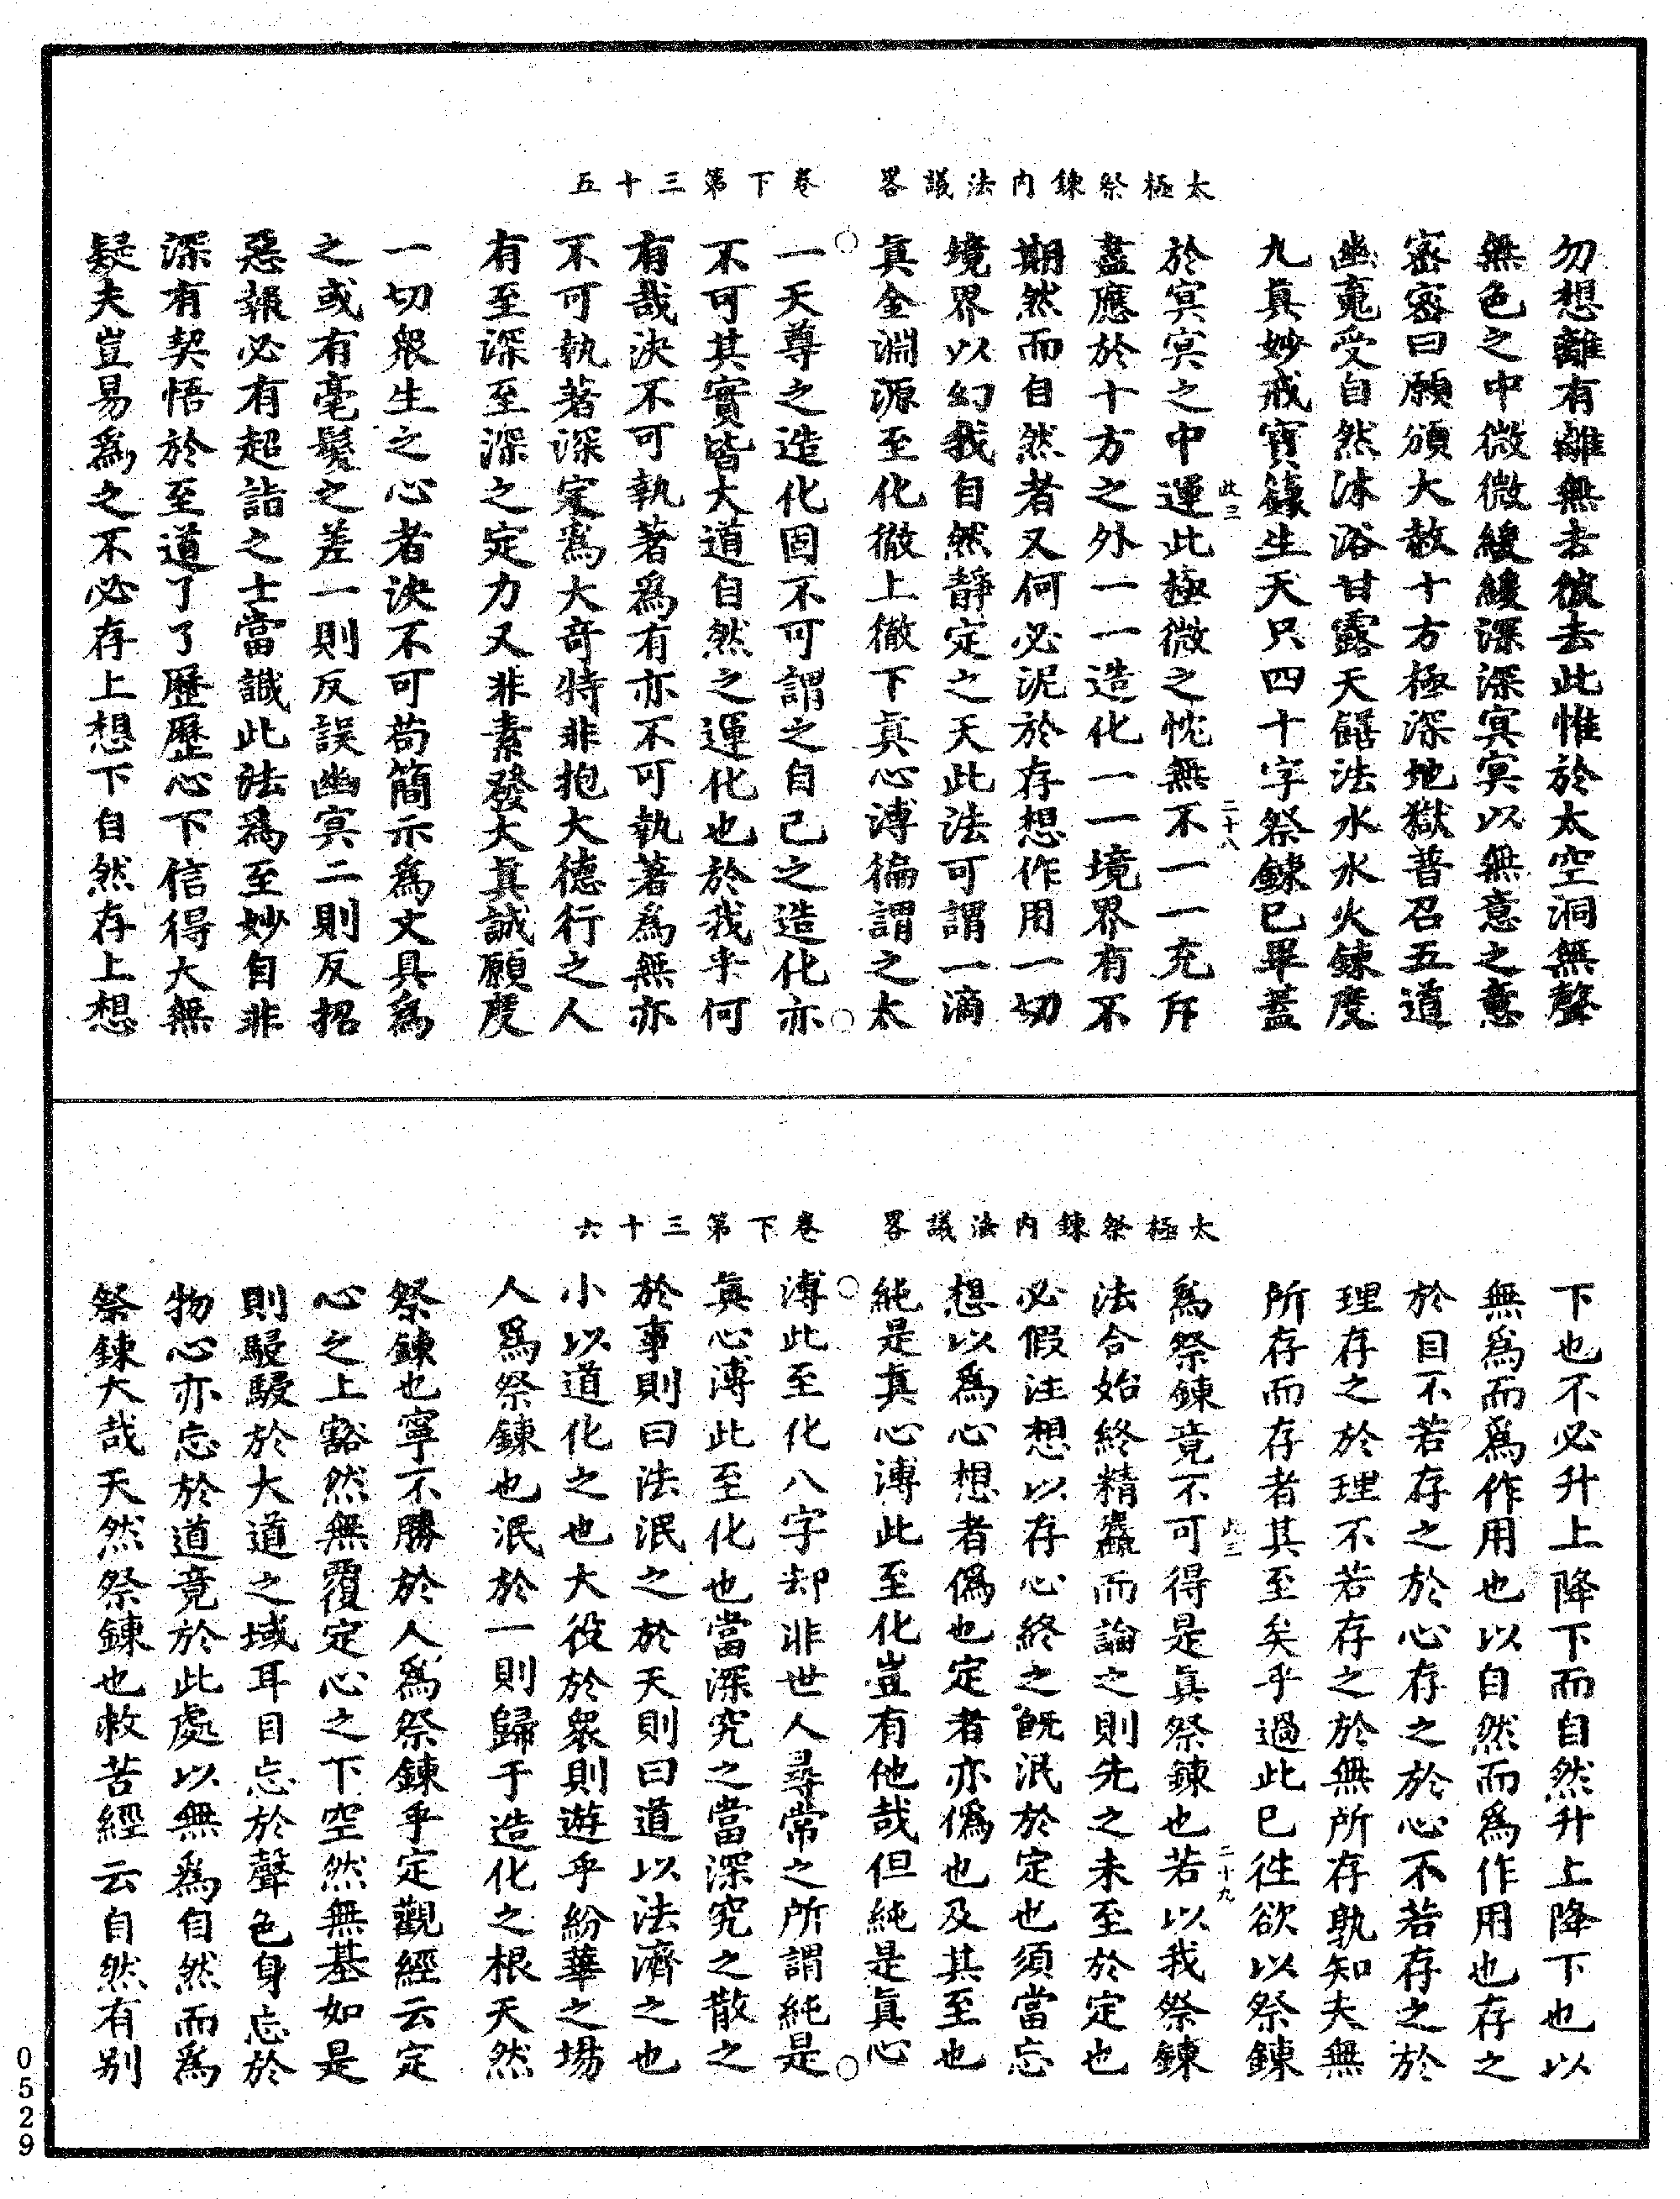 太極祭鍊內法議畧　卷下第三十五
勿想離有離無去彼去此惟於太空洞無聲
無色之中微微緩緩深深冥冥以無意之意
密密曰願頒大赦十方極深地獄普召五道
幽䰟受自然沐浴甘露天饍法水水火鍊度
九真妙戒寶籙生天只四十字祭鍊已畢蓋
於冥冥之中運此極微之忱無不一一充斥
盡應於十方之外一一造化一一境界有不
期然而自然者又何必泥於存想作用一切
境界以幻我自然靜定之天此法可謂一滴
真金淵源至化徹上徹下真心溥徧謂之太
一天尊之造化固不可謂之自己之造化亦
不可其實皆大道自然之運化也於我乎何
有哉決不可執著爲有亦不可執著爲無亦
不可執著深定爲大奇特非抱大德行之人
有至深至深之定力又非素發大真誠願度
一切衆生之心者決不可苟簡示爲文具爲
之或有毫髮之差一則反誤幽冥二則反招
惡報必有超詣之士當識此法爲至妙自非
深有契悟於至道了了歷歷心下信得大無
疑夫豈易爲之不必存上想下自然存上想
二十八
太極祭鍊內法議畧　卷下第三十六
下也不必升上降下而自然升上降下也以
無爲而爲作用也以自然而爲作用也存之
於目不若存之於心存之於心不若存之於
理存之於理不若存之於無所存孰知夫無
所存而存者其至矣乎過此已徃欲以祭鍊
爲祭鍊竟不可得是真祭鍊也若以我祭鍊
法合始終精麤而論之則先之未至於定也
必假注想以存心終之旣泯於定也須當忘
想以爲心想者僞也定者亦僞也及其至也
純是真心溥此至化豈有他哉但純是真心
溥此至化八字却非世人尋常之所謂純是
真心溥此至化也當深究之當深究之散之
於事則曰法泯之於天則曰道以法濟之也
小以道化之也大役於衆則遊乎紛華之場
人爲祭鍊也泯於一則歸于造化之根天然
祭鍊也寧不勝於人爲祭鍊乎定觀經云定
心之上豁然無覆定心之下空然無基如是
則駸駸於大道之域耳目忘於聲色身忘於
物心亦忘於道竟於此處以無爲自然而爲
祭鍊大哉天然祭鍊也救苦經云自然有别
二十九
0529